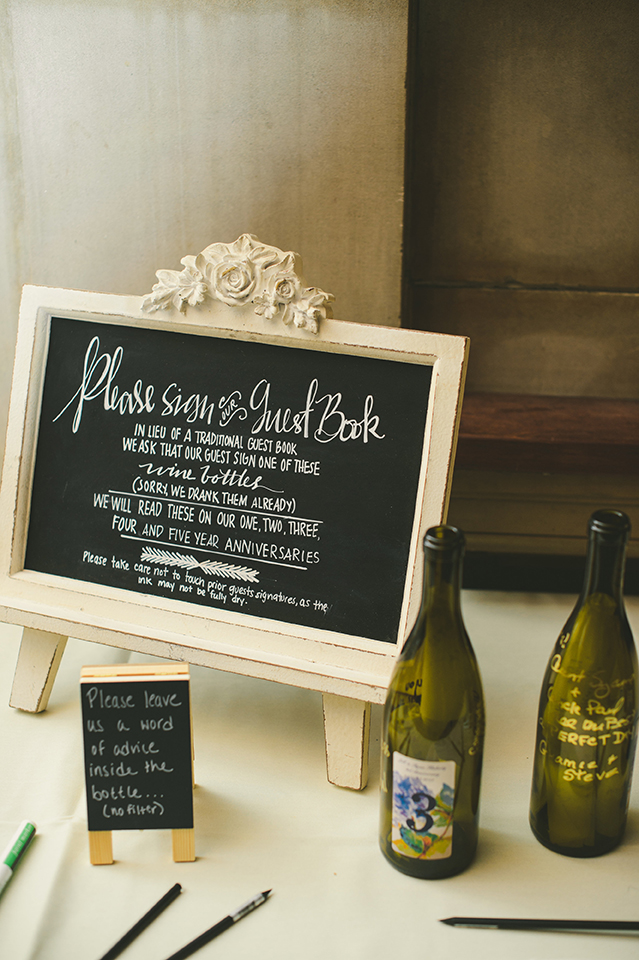 Please sign OUR Guest Book
IN LIEU OF A TRADITIONAL GUEST BOOK
WE ASK THAT OUR GUEST SIGN ONE OF THESE
wine bottles
(SORRY, WE DRANK THEM ALREADY)
WE WILL READ THESE ON OUR ONE, TWO, THREE,
FOUR, AND FIVE YEAR ANNIVERSARIES
Please take care not to touch prior guests signatures, as the
ink may not be fully dry.
Please leave
us a word
of advice
inside the
bottle...
(no filter)
3
+
Paul
+
Steve